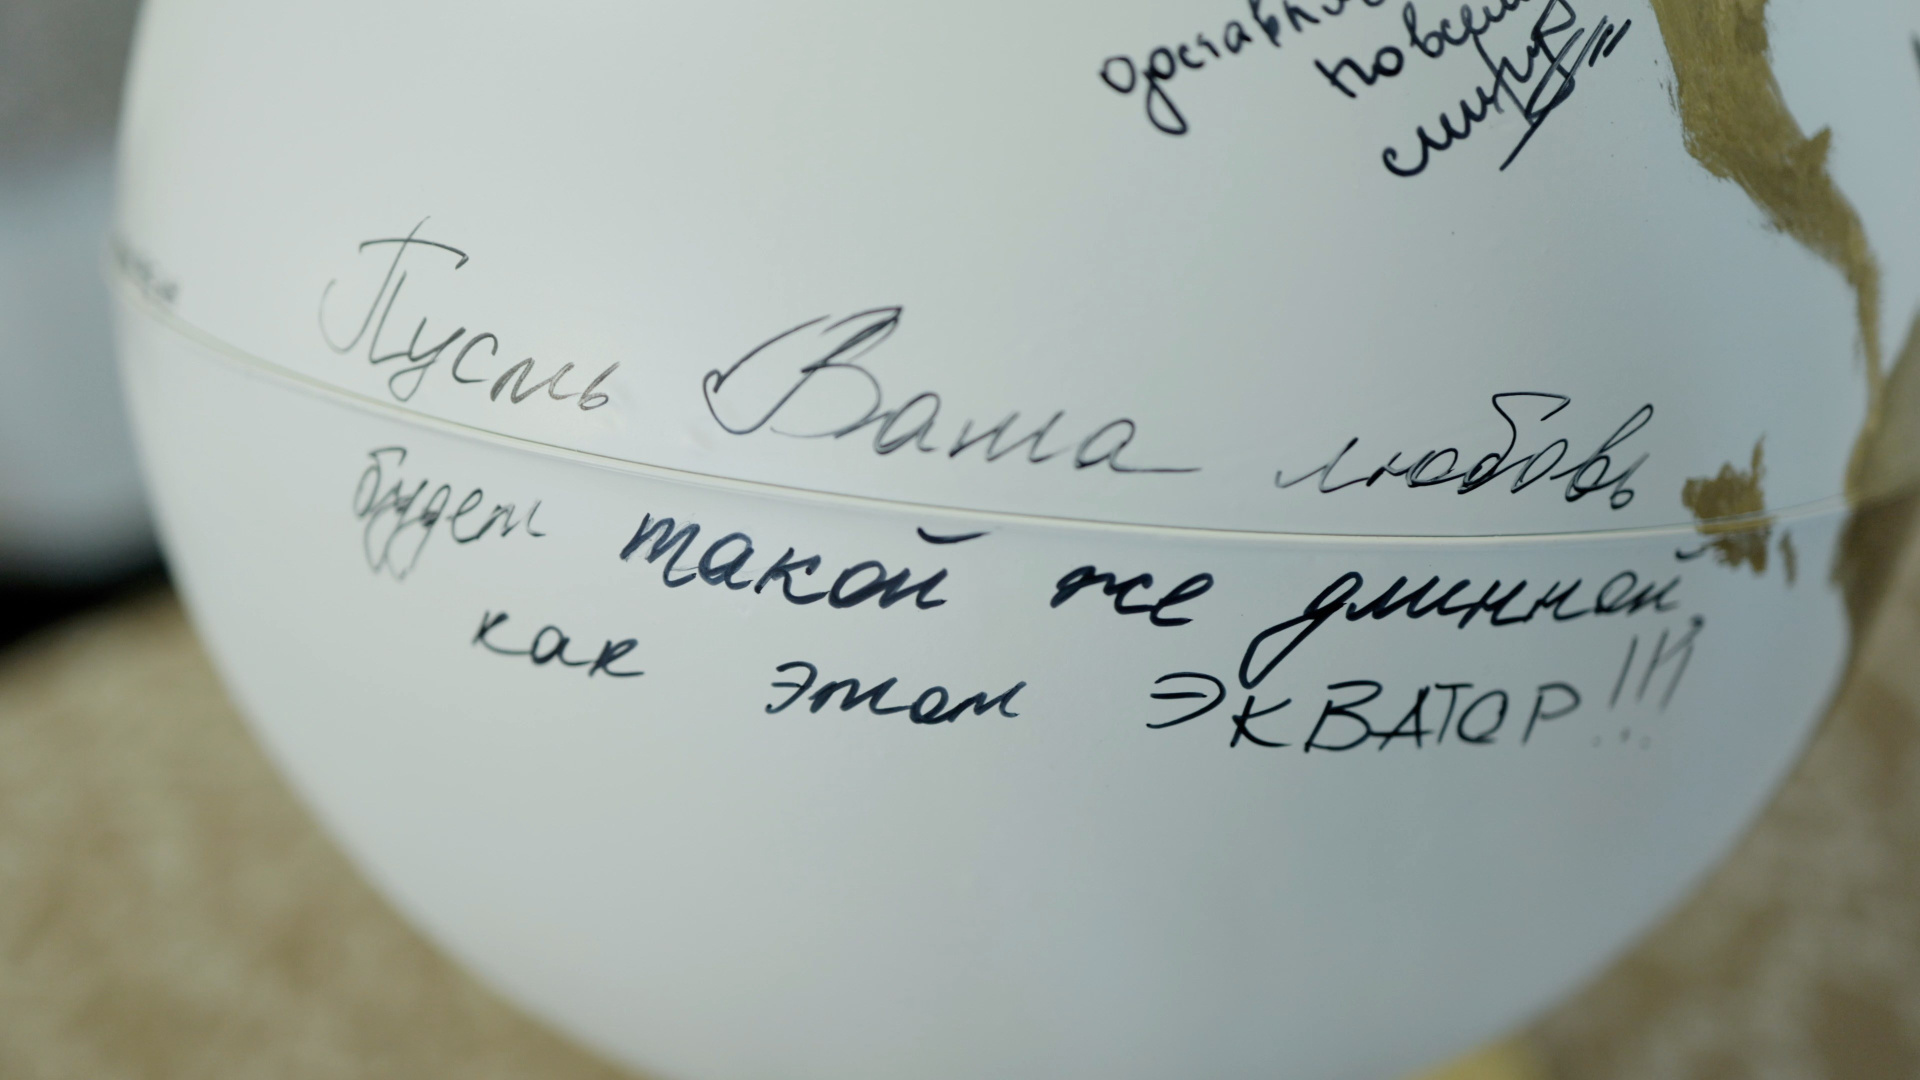 по всему
миру!!!
Пусть Ваша любовь
будет такой же длинной,
как этот ЭКВАТОР!!!